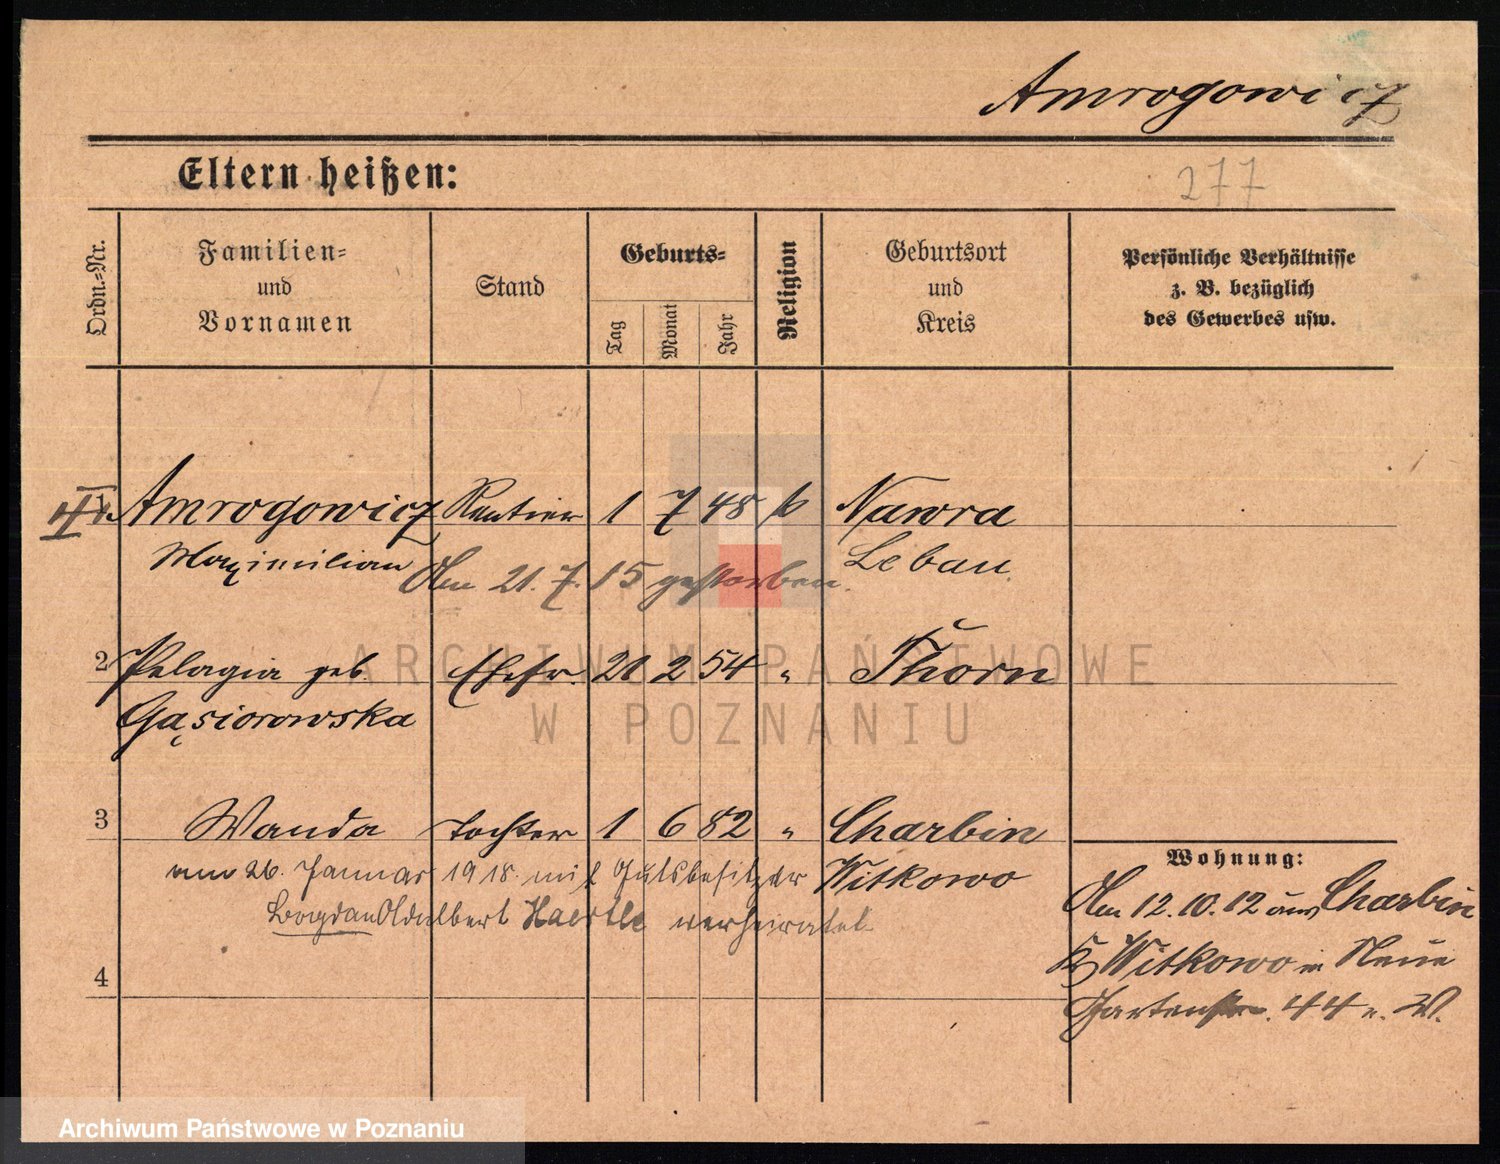 Amrogowicz
Eltern heißen:
277
Ordn.-Nr.
Familien-
und
Vornamen
Stand
Geburts-
Tag
Monat
Jahr
Religion
Geburtsort
und
Kreis
Persönliche Verhältnisse
z. B. bezüglich
des Gewerbes usw.
1 Amrogowicz Rentier 1 7 48 k Nawra
Maximilian Löbau
Am 21. 7. 15 gestorben.
2 Pelagia geb. Ehefr. 21 2 54 " Thorn
Gąsiorowska
3 Wanda Tochter 1 6 82 " Charbin
Witkowo
am 26. Januar 1918. mit Gutsbesitzer
Bogdan Adalbert Haertle verheiratet
4
Wohnung:
Am 12.10.12 aus Charbin
Kr. Witkowo n. Neue
Gartenstr. 44 v. W.
ARCHIWUM PAŃSTWOWE
W POZNANIU
Archiwum Państwowe w Poznaniu